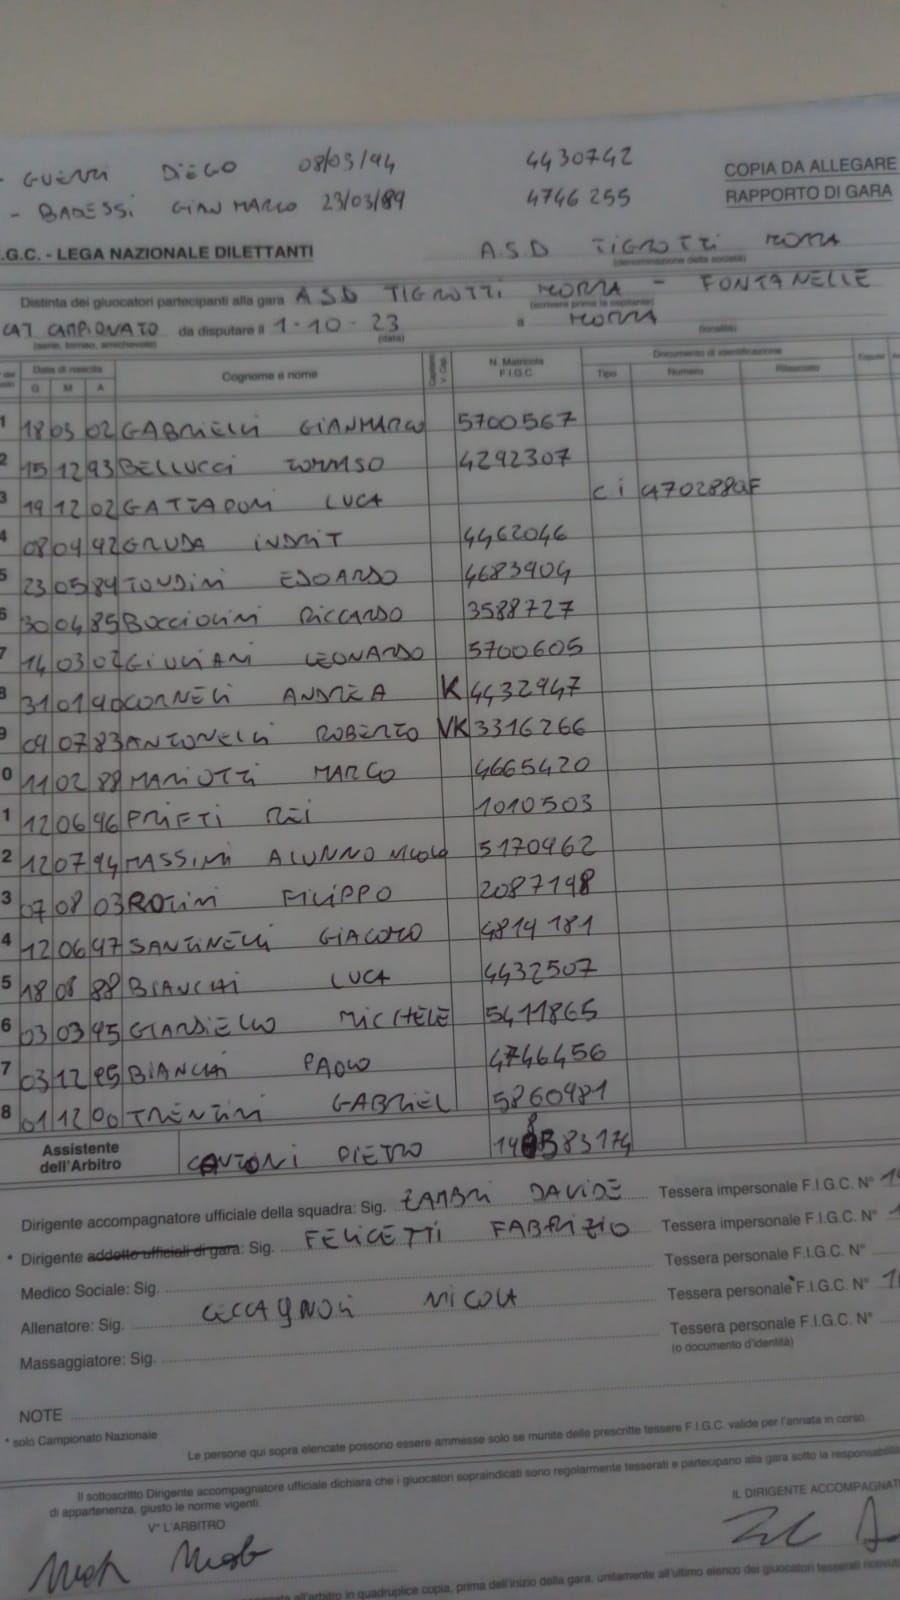 - GUERRI DIEGO 08/03/94 4430742
- BADESSI GIANMARCO 23/03/89 4746255
COPIA DA ALLEGARE
RAPPORTO DI GARA
.G.C. - LEGA NAZIONALE DILETTANTI A.S.D TIGROTTI MORRA
(denominazione della società)
Distinta dei giuocatori partecipanti alla gara ASD TIGROTTI MORRA - FONTANELLE
(scrivere prima la ospitante)
CAT CAMPIONATO da disputare il 1-10-23 a MORRA
(serie, torneo, amichevole) (data) (località)
Data di nascita Cognome e nome N. Matricola F.I.G.C. Documento di identificazione
G M A Tipo Numero Rilasciato
1 18 03 02 GABRIELLI GIANMARCO 5700567
2 15 12 93 BELLUCCI TOMMASO 4292307
3 19 12 02 GATTAPONI LUCA ci 4702889AF
4 08 04 92 GRUDA INDRIT 4462046
5 23 05 84 TONDINI EDOARDO 4683904
6 30 04 85 BOCCIOLINI RICCARDO 3588727
7 14 03 02 GIULIANI LEONARDO 5700605
8 31 01 90 CORNELI ANDREA K 4432947
9 09 07 83 ANTONELLI ROBERTO VK 3316266
0 11 02 88 MARIOTTI MARCO 4665420
1 12 06 96 PRIFTI REI 1010503
2 12 07 94 MASSIMI ALUNNO NICOLO 5170962
3 07 08 03 ROSINI FILIPPO 2087198
4 12 06 97 SANTINELLI GIACOMO 4814181
5 18 08 88 BIANCHI LUCA 4432507
6 03 03 95 GIARDIELLO MICHELE 5411865
7 03 12 85 BIANCHI PAOLO 4746456
8 01 12 00 TRENTINI GABRIEL 5860981
Assistente dell'Arbitro CANTONI PIETRO
Dirigente accompagnatore ufficiale della squadra: Sig. ZAMBRI DAVIDE Tessera impersonale F.I.G.C. N°
* Dirigente addetto ufficiali di gara: Sig. FELICETTI FABRIZIO Tessera impersonale F.I.G.C. N°
Medico Sociale: Sig. Tessera personale F.I.G.C. N°
Allenatore: Sig. CECCAGNOLI NICOLA Tessera personale F.I.G.C. N°
Massaggiatore: Sig. Tessera personale F.I.G.C. N°
(o documento d'identità)
NOTE
* solo Campionato Nazionale
Le persone qui sopra elencate possono essere ammesse solo se munite delle prescritte tessere F.I.G.C. valide per l'annata in corso.
Il sottoscritto Dirigente accompagnatore ufficiale dichiara che i giuocatori sopraindicati sono regolarmente tesserati e partecipano alla gara sotto la responsabilità
di appartenenza, giusto le norme vigenti.
V° L'ARBITRO IL DIRIGENTE ACCOMPAGNAT
all'arbitro in quadruplice copia, prima dell'inizio della gara, unitamente all'ultimo elenco dei giuocatori tesserati